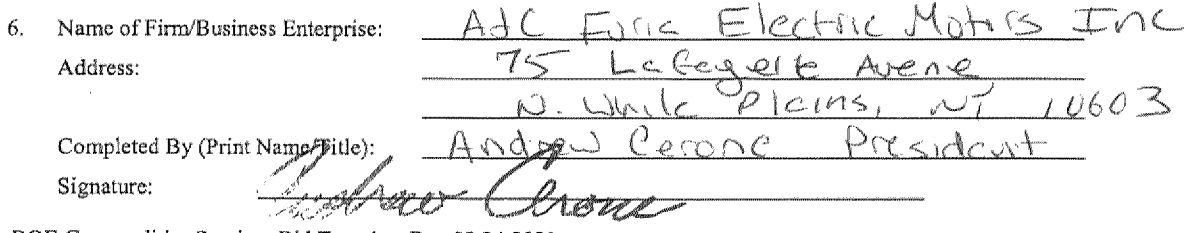 6. Name of Firm/Business Enterprise: A&C Furia Electric Motors Inc
Address: 75 Lafayette Avene
N. White Plains, NY 10603
Completed By (Print Name/Title): Andrew Cerone President
Signature: Andrew Cerone